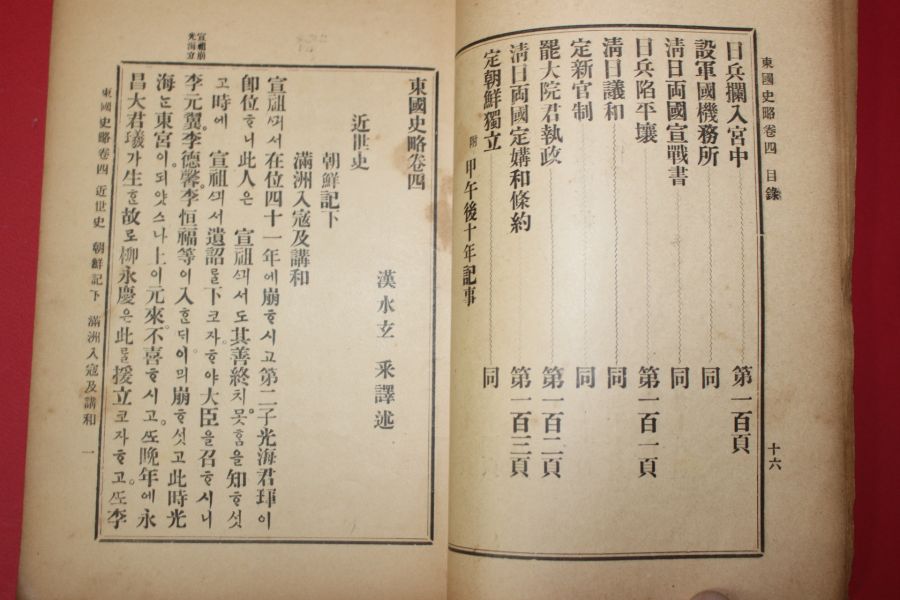 東國史略卷四 目錄
十六
日兵攔入宮中 第一百頁
設軍國機務所 同
淸日兩國宣戰書 同
日兵陷平壤 第一百一頁
淸日議和 同
定新官制 同
罷大院君執政 第一百二頁
淸日兩國定媾和條約 第一百三頁
定朝鮮獨立 同
附 甲午後十年記事
宣祖崩
光海立
東國史略卷四
漢水玄 采譯述
近世史
朝鮮記下
滿洲入寇及講和
宣祖ᄭᅴ셔在位四十一年에崩ᄒᆞ시고第二子光海君琿이
卽位ᄒᆞ니此人은 宣祖ᄭᅴ셔도其善終치못ᄒᆞᆷ을知ᄒᆞ셧
고時에 宣祖ᄭᅴ셔遺詔를下코자ᄒᆞ야大臣을召ᄒᆞ시니
李元翼李德馨李恒福等이入ᄒᆞᆫ디이믜崩ᄒᆞ셧고此時光
海는東宮이되얏스나上이元來不喜ᄒᆞ시고ᄯᅩ晩年에永
昌大君㼁가生ᄒᆞᆫ故로柳永慶은此를援立코자ᄒᆞ고ᄯᅩ李
東國史略卷四 近世史 朝鮮記下 滿洲入寇及講和 一